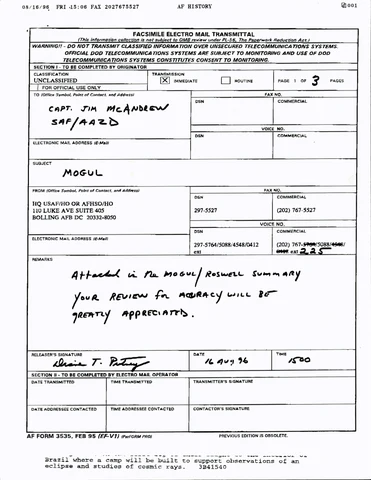 08/16/96 FRI 15:08 FAX 2027675527 AF HISTORY 001
FACSIMILE ELECTRO MAIL TRANSMITTAL
(This information collection is not subject to OMB review under PL-96, The Paperwork Reduction Act.)
WARNING!! - DO NOT TRANSMIT CLASSIFIED INFORMATION OVER UNSECURED TELECOMMUNICATIONS SYSTEMS.
OFFICIAL DOD TELECOMMUNICATIONS SYSTEMS ARE SUBJECT TO MONITORING AND USE OF DOD
TELECOMMUNICATIONS SYSTEMS CONSTITUTES CONSENT TO MONITORING.
SECTION I - TO BE COMPLETED BY ORIGINATOR
CLASSIFICATION TRANSMISSION
UNCLASSIFIED X IMMEDIATE ROUTINE PAGE 1 OF 3 PAGES
FOR OFFICIAL USE ONLY
TO (Office Symbol, Point of Contact, and Address) FAX NO.
DSN COMMERCIAL
CAPT. JIM McANDREW
SAF/AAZD
VOICE NO.
DSN COMMERCIAL
ELECTRONIC MAIL ADDRESS (E-Mail)
SUBJECT
MOGUL
FROM (Office Symbol, Point of Contact, and Address) FAX NO.
DSN COMMERCIAL
HQ USAF/HO OR AFHSO/HO
110 LUKE AVE SUITE 405 297-5527 (202) 767-5527
BOLLING AFB DC 20332-8050
VOICE NO.
DSN COMMERCIAL
ELECTRONIC MAIL ADDRESS (E-Mail)
297-5764/5088/4548/0412 (202) 767-5764/5088/4548/
ext ext 225
REMARKS
Attached is the MOGUL/ROSWELL SUMMARY
YOUR REVIEW for ACCURACY WILL BE
GREATLY APPRECIATED.
RELEASER'S SIGNATURE DATE TIME
16 AUG 96 1500
SECTION II - TO BE COMPLETED BY ELECTRO MAIL OPERATOR
DATE TRANSMITTED TIME TRANSMITTED TRANSMITTER'S SIGNATURE
DATE ADDRESSEE CONTACTED TIME ADDRESSEE CONTACTED CONTACTOR'S SIGNATURE
AF FORM 3535, FEB 95 (EF-V1) (PerFORM PRO) PREVIOUS EDITION IS OBSOLETE.
Brazil where a camp will be built to support observations of an
eclipse and studies of cosmic rays. 3B41540